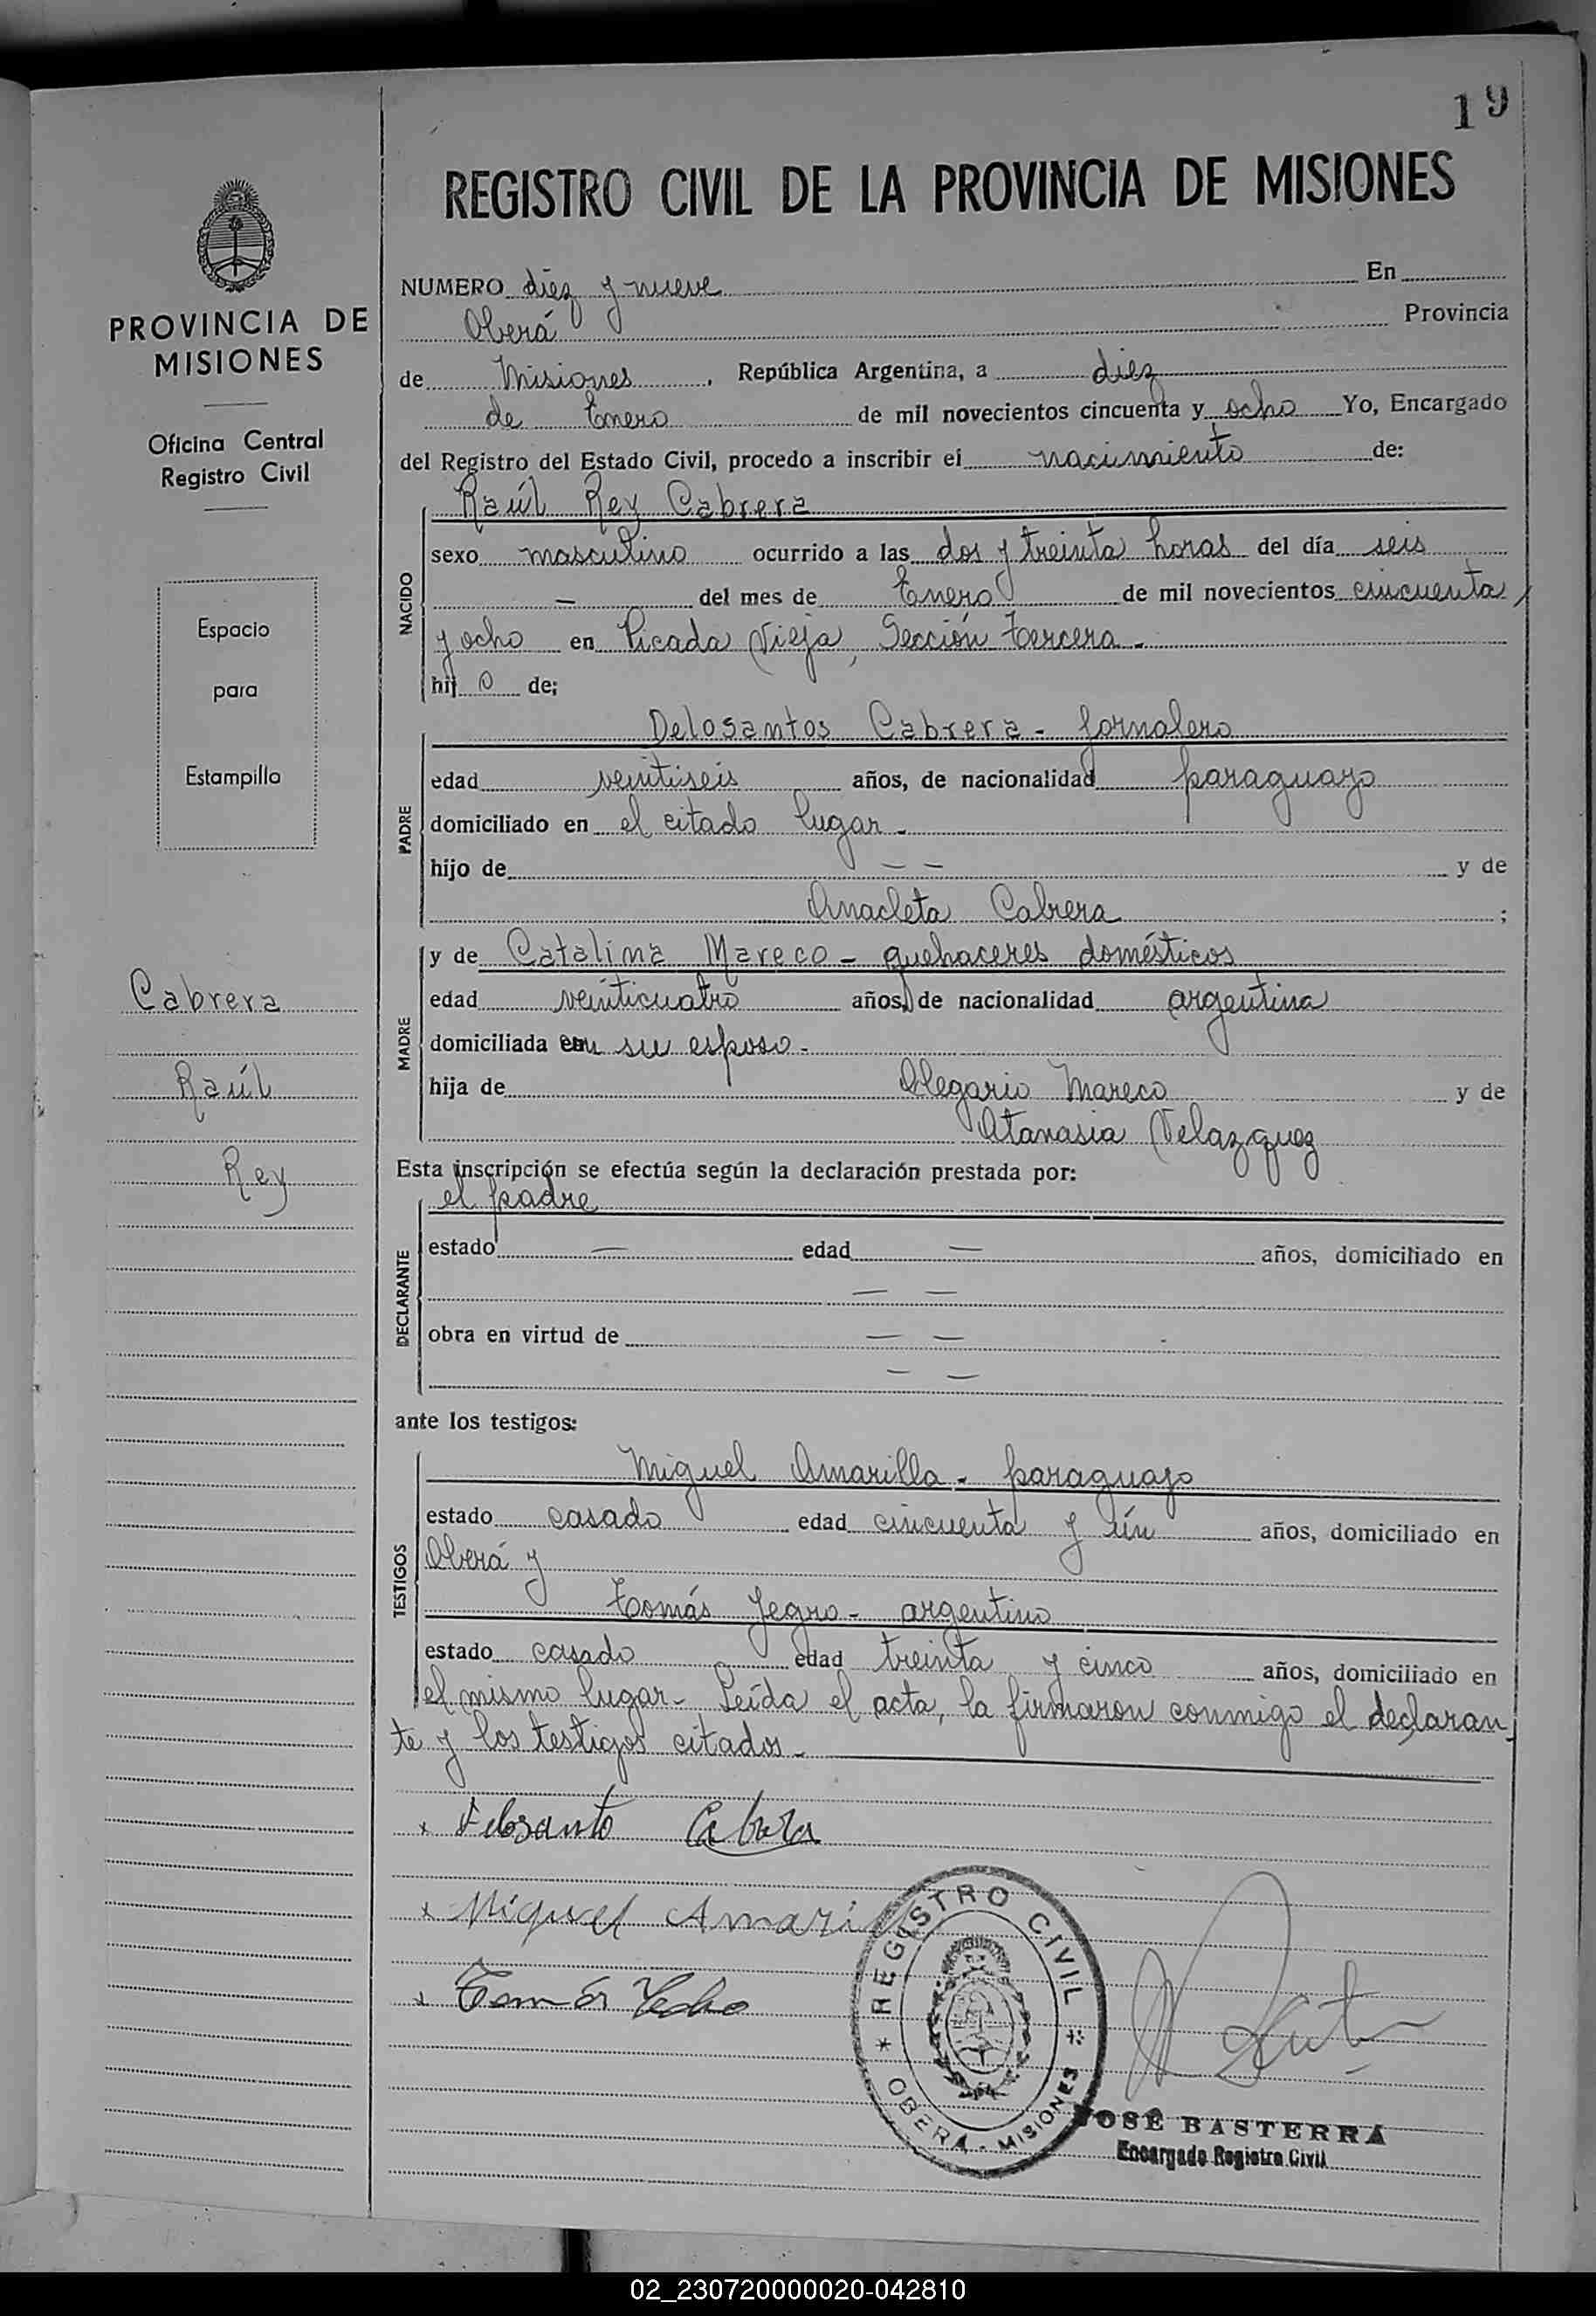 19
REGISTRO CIVIL DE LA PROVINCIA DE MISIONES
PROVINCIA DE
MISIONES
Oficina Central
Registro Civil
Espacio
para
Estampilla
Cabrera
Raúl
Rey
NUMERO diez y nueve En
Oberá Provincia
de Misiones, República Argentina, a diez
de Enero de mil novecientos cincuenta y ocho Yo, Encargado
del Registro del Estado Civil, procedo a inscribir el nacimiento de:
NACIDO
Raúl Rey Cabrera
sexo masculino ocurrido a las dos y treinta horas del día seis
— del mes de Enero de mil novecientos cincuenta
y ocho en Picada Vieja, Sección tercera.-
hijo de;
PADRE
Delosantos Cabrera - Jornalero
edad veintiseis años, de nacionalidad paraguayo
domiciliado en el citado lugar.-
hijo de — — y de
Anacleta Cabrera ;
MADRE
y de Catalina Mareco - quehaceres domésticos
edad veinticuatro años, de nacionalidad argentina
domiciliada con su esposo.-
hija de Olegario Mareco y de
Atanasia Velazquez
Esta inscripción se efectúa según la declaración prestada por:
DECLARANTE
el padre
estado — edad — años, domiciliado en
— —
obra en virtud de — —
— —
ante los testigos:
TESTIGOS
Miguel Amarilla - paraguayo
estado casado edad cincuenta y ún años, domiciliado en
Oberá y
Tomás Yegro - argentino
estado casado edad treinta y cinco años, domiciliado en
el mismo lugar.- Leída el acta, la firmaron conmigo el declaran
te y los testigos citados.-
x Delosanto Cabrera
x Miguel Amari
x Tomás
REGISTRO CIVIL
* OBERA - MISIONES *
JOSÉ BASTERRA
Encargado Registro Civil
02_230720000020-042810